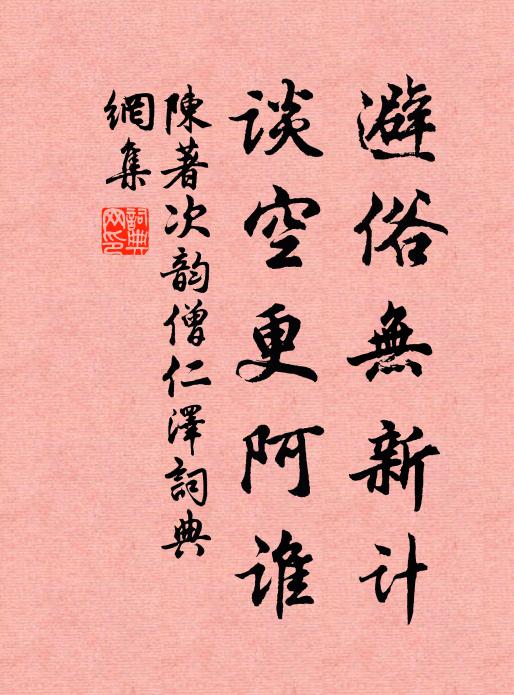 避俗無新计
谈空更阿谁
陳著次韵僧仁澤詞典
網集
詞典网印